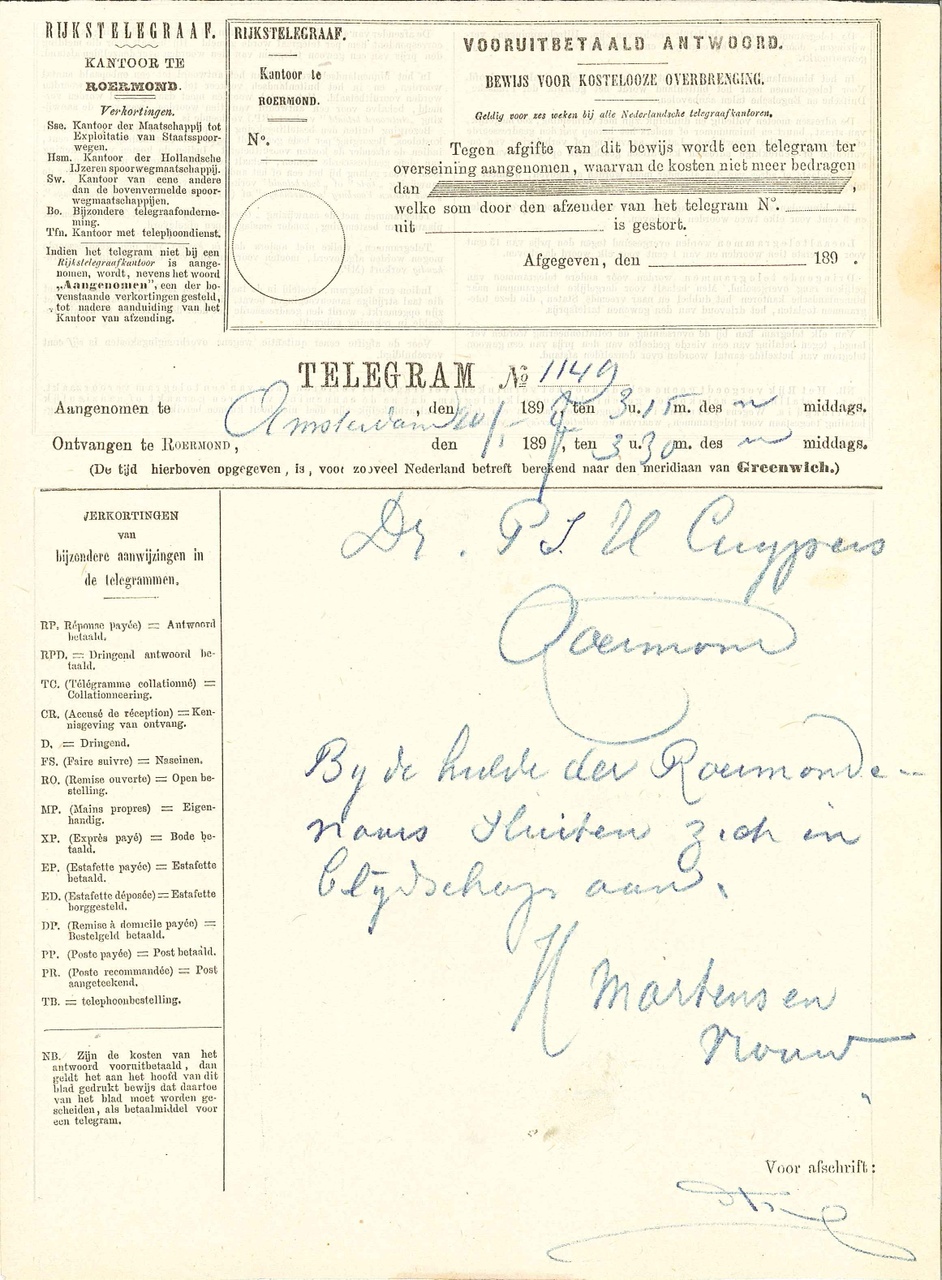 RIJKSTELEGRAAF.
KANTOOR TE
ROERMOND.
Verkortingen.
Sse. Kantoor der Maatschappij tot
Exploitatie van Staatsspoor-
wegen.
Hsm. Kantoor der Hollandsche
IJzeren spoorwegmaatschappij.
Sw. Kantoor van eene andere
dan de bovenvermelde spoor-
wegmaatschappijen.
Bo. Bijzondere telegraafonderne-
ming.
Tfn. Kantoor met telephoondienst.
Indien het telegram niet bij een
Rijkstelegraafkantoor is aange-
nomen, wordt, nevens het woord
„Aangenomen", een der bo-
venstaande verkortingen gesteld,
tot nadere aanduiding van het
Kantoor van afzending.
RIJKSTELEGRAAF.
Kantoor te
ROERMOND.
No.
VOORUITBETAALD ANTWOORD.
BEWIJS VOOR KOSTELOOZE OVERBRENGING.
Geldig voor zes weken bij alle Nederlandsche telegraafkantoren.
Tegen afgifte van dit bewijs wordt een telegram ter
overseining aangenomen, waarvan de kosten niet meer bedragen
dan ,
welke som door den afzender van het telegram No.
uit is gestort.
Afgegeven, den 189 .
TELEGRAM No 1149
Aangenomen te Amsterdam, den 20/1 1897, ten 3 u. 15 m. des n middags.
Ontvangen te ROERMOND, den 1897, ten 3 u. 30 m. des n middags.
(De tijd hierboven opgegeven, is, voor zooveel Nederland betreft berekend naar den meridiaan van Greenwich.)
VERKORTINGEN
van
bijzondere aanwijzingen in
de telegrammen.
RP. Réponse payée) = Antwoord
betaald.
RPD. = Dringend antwoord be-
taald.
TC. (Télégramme collationné) =
Collationneering.
CR. (Accusé de réception) = Ken-
nisgeving van ontvang.
D. = Dringend.
FS. (Faire suivre) = Naseinen.
RO. (Remise ouverte) = Open be-
stelling.
MP. (Mains propres) = Eigen-
handig.
XP. (Exprès payé) = Bode be-
taald.
EP. (Estafette payée) = Estafette
betaald.
ED. (Estafette déposée) = Estafette
borggesteld.
DP. (Remise à domicile payée) =
Bestelgeld betaald.
PP. (Poste payée) = Post betaald.
PR. (Poste recommandée) = Post
aangeteekend.
TB. = telephoonbestelling.
NB. Zijn de kosten van het
antwoord vooruitbetaald, dan
geldt het aan het hoofd van dit
blad gedrukt bewijs dat daartoe
van het blad moet worden ge-
scheiden, als betaalmiddel voor
een telegram.
Dr. P J H Cuypers
Roermond
By de hulde der Roermonde-
naars sluiten zich in
blydschap aan.
H Martens en
vrouw
Voor afschrift: